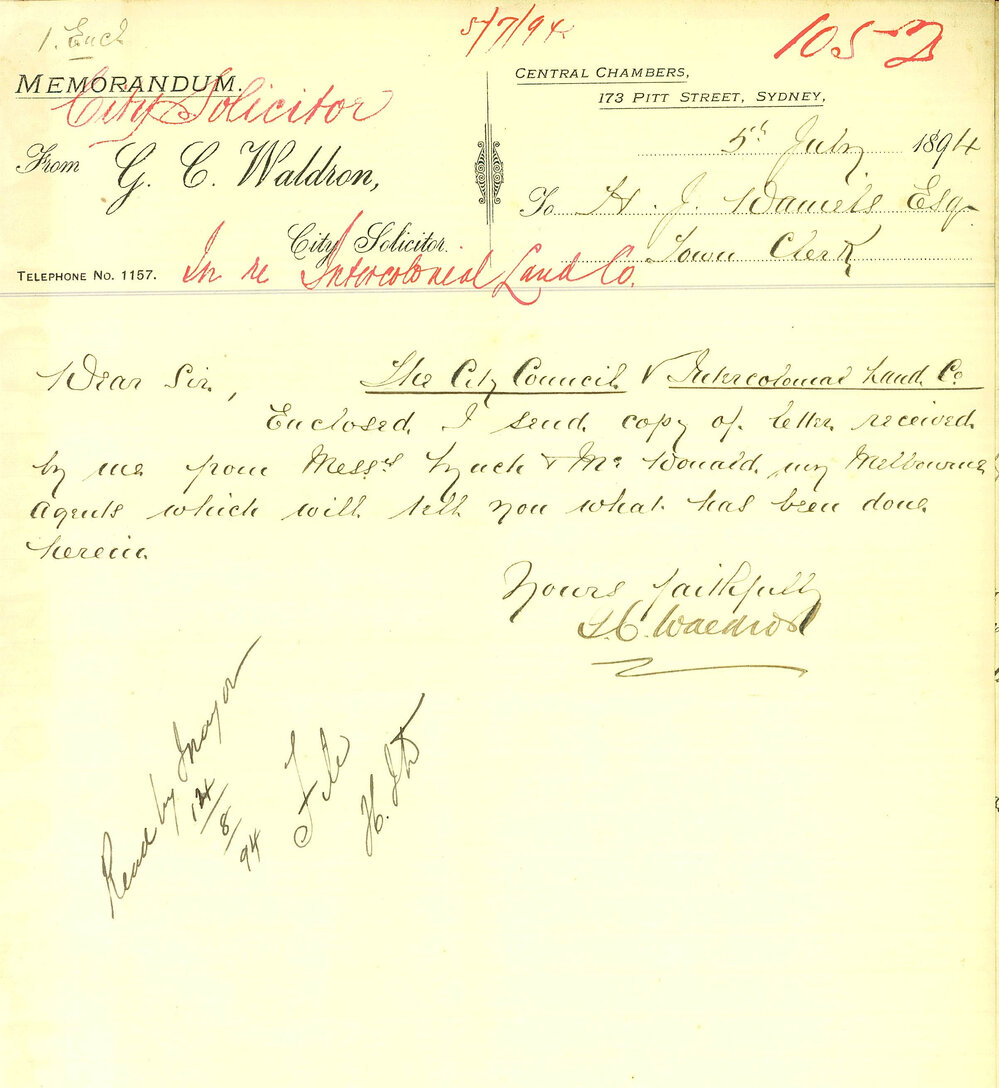 1. Encl
5/7/94
1052
MEMORANDUM.
City Solicitor
From G. C. Waldron,
City Solicitor.
TELEPHONE NO. 1157.
In re Intercolonial Land Co.
CENTRAL CHAMBERS,
173 PITT STREET, SYDNEY,
5th July 1894
To H. J. Daniels Esq
Town Clerk
Dear Sir,
The City Council v Intercolonial Land Co
Enclosed I send copy of letter received
by me from Messrs Lynch & Mc Donald my Melbourne
Agents which will tell you what has been done
herein.
Yours faithfully
G. C. Waldron
Read by Mayor
8
94
File